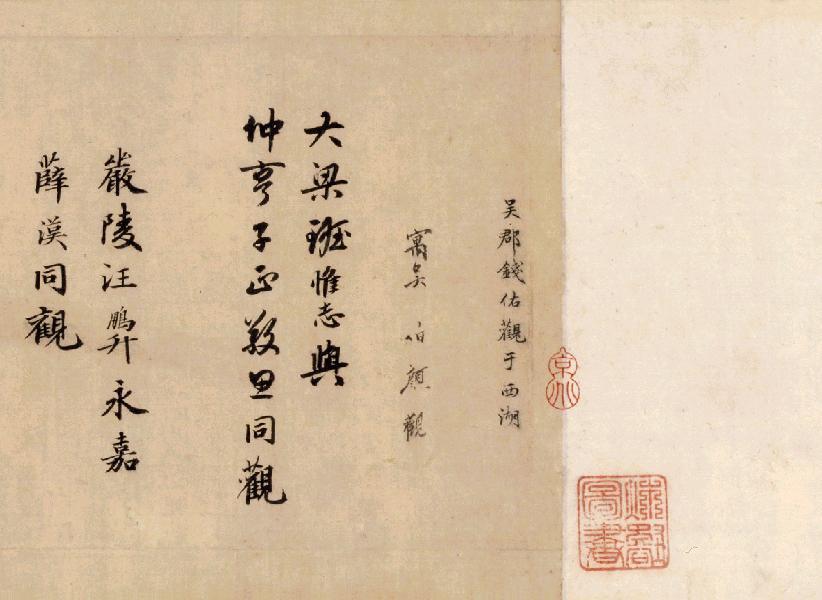 吴郡錢佑觀于西湖
寓吳 伯顏觀
大梁班惟志與
仲亨子正敬思同觀
嚴陵汪鵬升永嘉
薛漢同觀
京
圖書